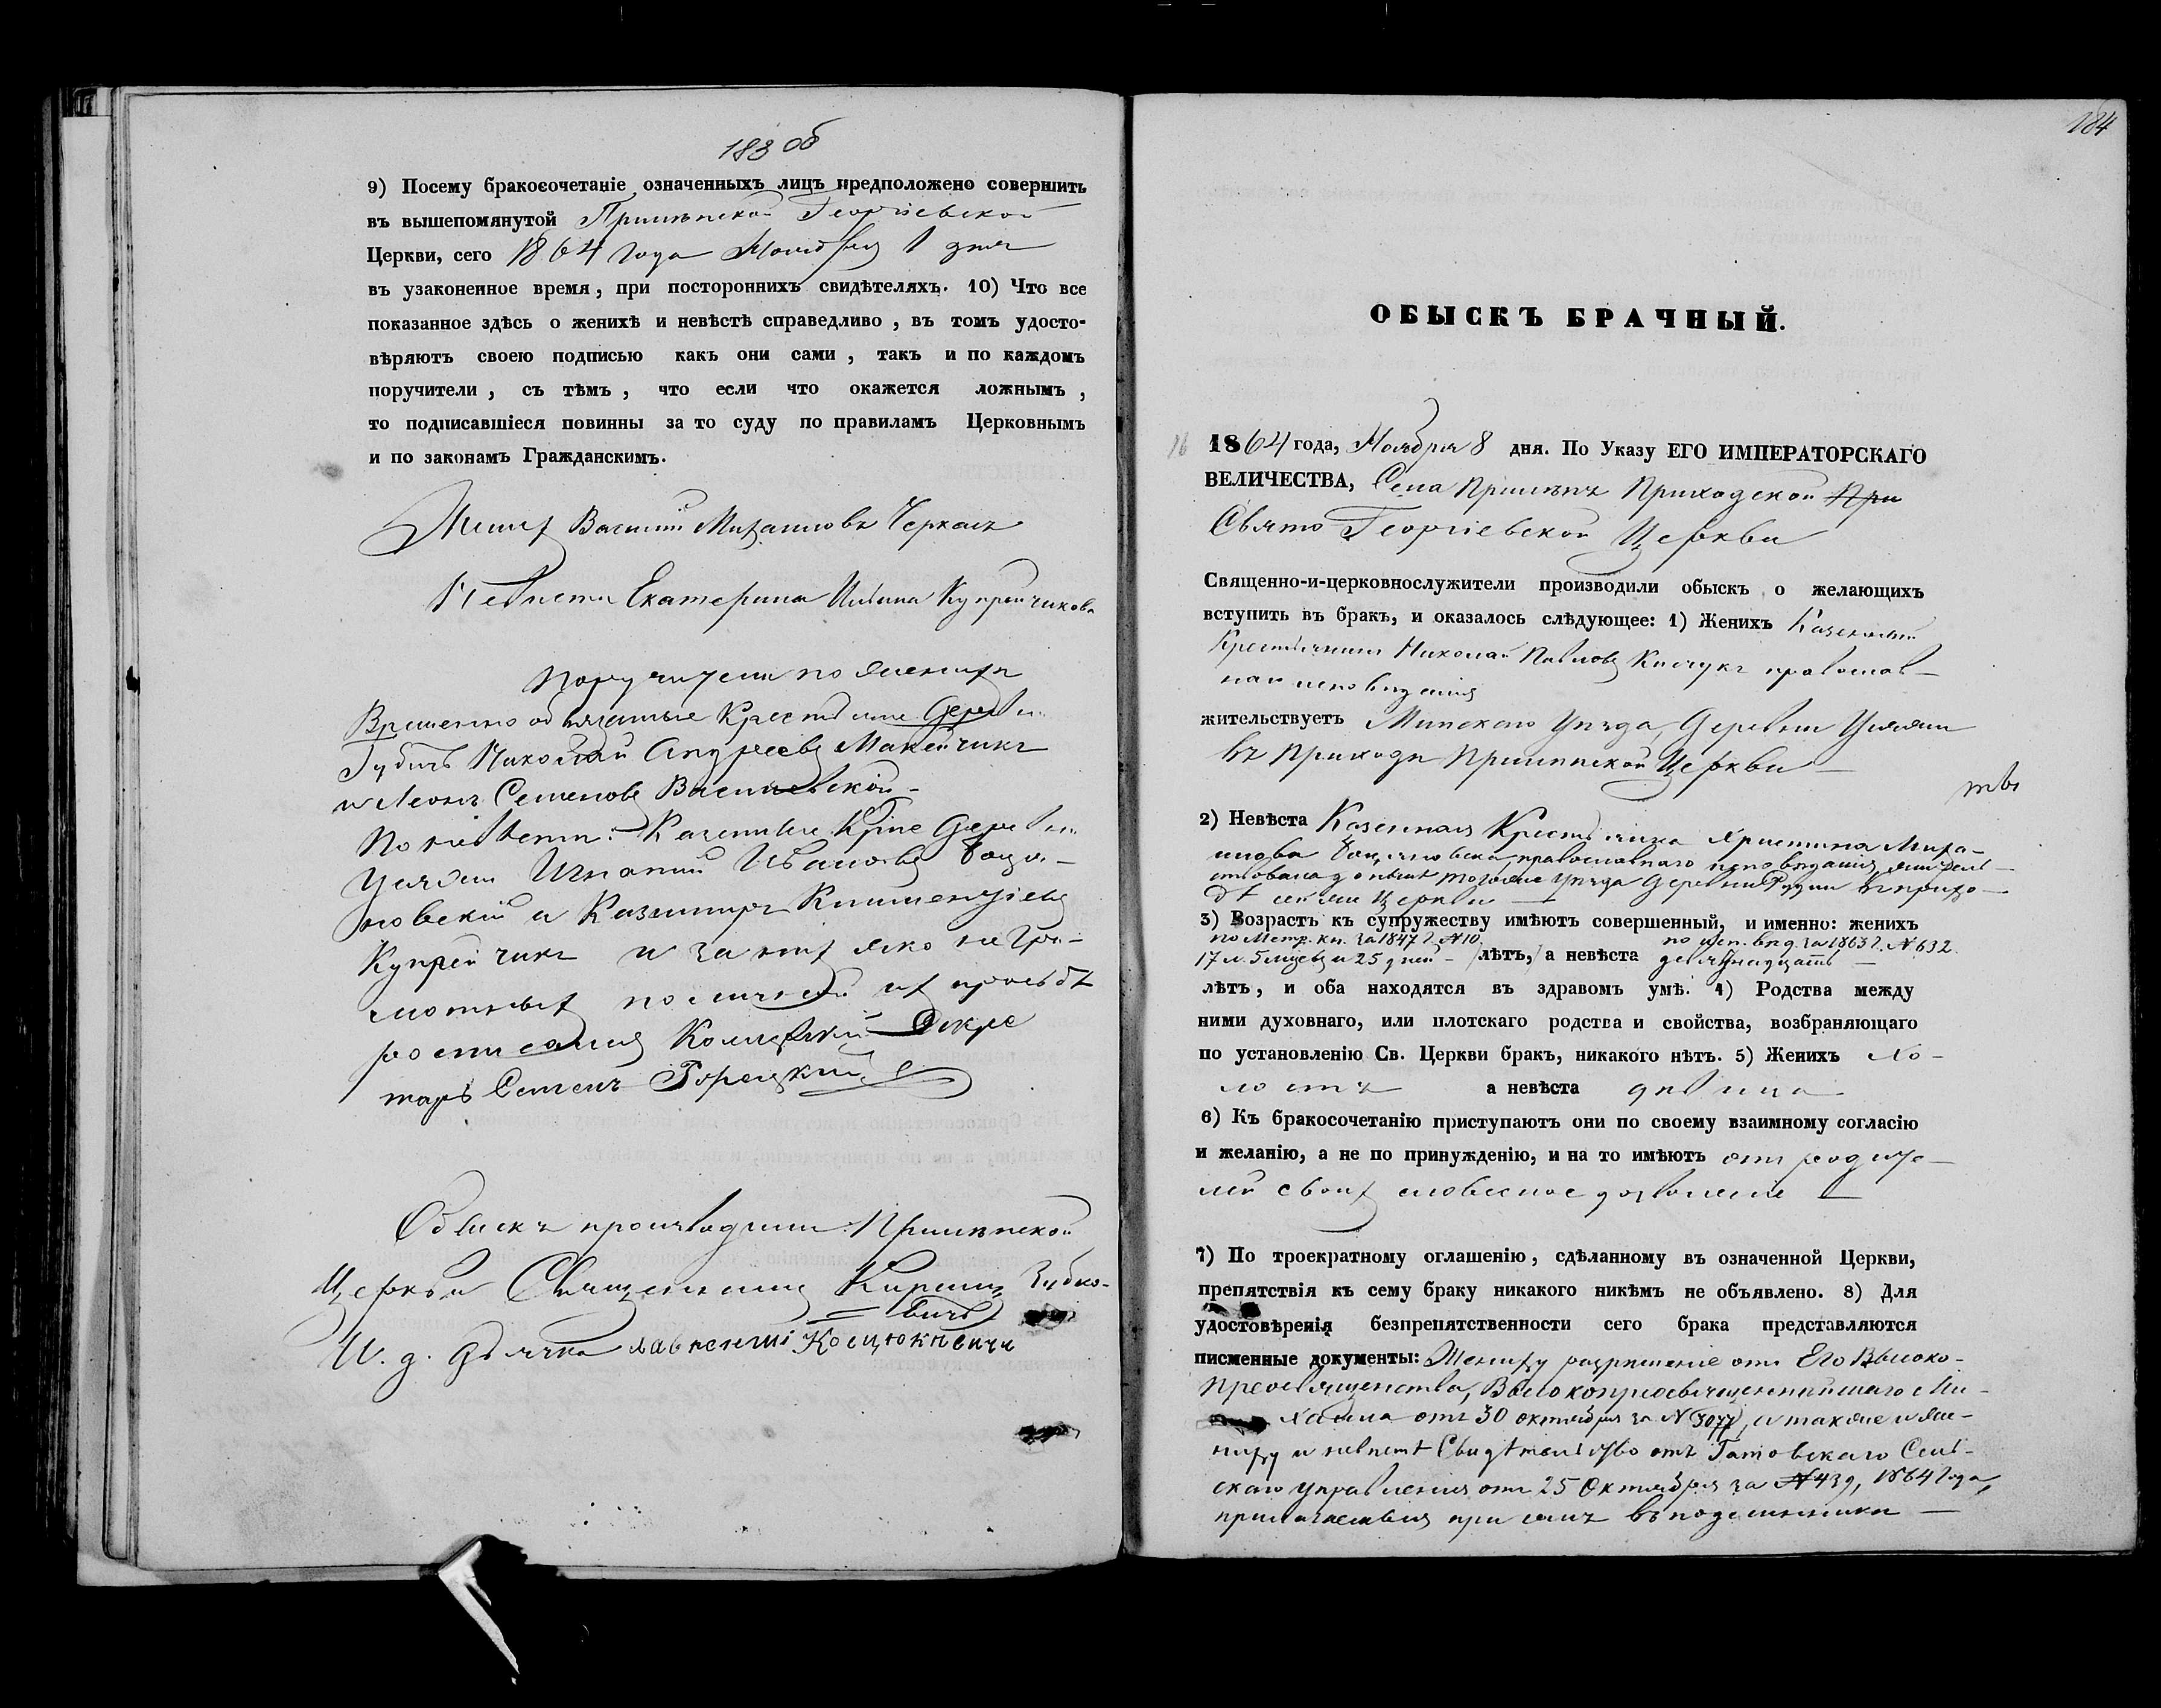 183 об
9) Посему бракосочетаніе означенныхъ лицъ предположено совершить
въ вышепомянутой Прилѣпской Георгіевской
Церкви, сего 1864 года Ноября 1 дня
въ узаконенное время, при постороннихъ свидѣтеляхъ. 10) Что все
показанное здѣсь о женихѣ и невѣстѣ справедливо, въ томъ удосто-
вѣряютъ своею подписью какъ они сами, такъ и по каждомъ
поручители, съ тѣмъ, что если что окажется ложнымъ,
то подписавшіеся повинны за то суду по правиламъ Церковнымъ
и по законамъ Гражданскимъ.
Женихъ Василій Михаиловъ Черкасъ
Невѣста Екатерина Ильина Купрейчикова
Поручители по женихѣ
Временно обязанные Крестьяне Деревни
Николай Андреевъ Макейчикъ
и Леонъ Семеновъ Василевскій
По невѣстѣ: Казенные Крпе Деревни
Уляжи Игнатій Ивановъ Боция-
новскій и Казимиръ Климентіевъ
Купрейчикъ и за нихъ яко негра-
мотныхъ по личной ихъ просьбѣ
росписался Секре
тарь Семенъ Горецкій
Обыскъ производили Прилѣпской
Церкви Священникъ Кириллъ Зубко-
вичъ
И. д. дьячка Лаврентій Костюкевичъ
184
16
1864 года, Ноября 8 дня. По Указу ЕГО ИМПЕРАТОРСКАГО
ОБЫСКЪ БРАЧНЫЙ.
ВЕЛИЧЕСТВА, Села Прилѣпъ Приходской При
Свято Георгіевской Церкви
Священно-и-церковнослужители производили обыскъ о желающихъ
вступить въ бракъ, и оказалось слѣдующее: 1) Женихъ Казенный
Крестьянинъ Николай Павловъ Кисчукъ православ-
наго исповѣданія
жительствуетъ Минскаго Уѣзда, Деревни Уляжи
въ Приходѣ Прилѣпской Церкви
2) Невѣста Казенная Крестьянка Христина Миха-
илова православнаго исповѣданія, жительс-
твовала донынѣ тогоже уѣзда деревни Рудни въ прихо-
дѣ сей же Церкви
3) Возрастъ къ супружеству имѣютъ совершенный, и именно: женихъ
по Метр. кн. за 1847 г. №10. по исп. вѣд. за 1863 г. №632.
17 л. 5 мцевъ и 25 дней лѣтъ, а невѣста девятнадцать
лѣтъ, и оба находятся въ здравомъ умѣ. 4) Родства между
ними духовнаго, или плотскаго родства и свойства, возбраняющаго
по установленію Св. Церкви бракъ, никакого нѣтъ. 5) Женихъ хо-
лостъ а невѣста дѣвица
6) Къ бракосочетанію приступаютъ они по своему взаимному согласію
и желанію, а не по принужденію, и на то имѣютъ отъ родите-
лей своихъ словесное дозволеніе
7) По троекратному оглашенію, сдѣланному въ означенной Церкви,
препятствія къ сему браку никакого никѣмъ не объявлено. 8) Для
удостовѣренія безпрепятственности сего брака представляются
писменные документы: Жениху разрѣшеніе отъ Его Высоко-
преосвященства, Высокопреосвященнѣйшаго Ми-
хаила отъ 30 октября за №3077, а также и же-
ниху и невѣстѣ Свидѣтельство отъ Гатовскаго Сель-
скаго управленія отъ 25 Октября за №439, 1864 года,
прилагаемыя при семъ въ подлинникѣ